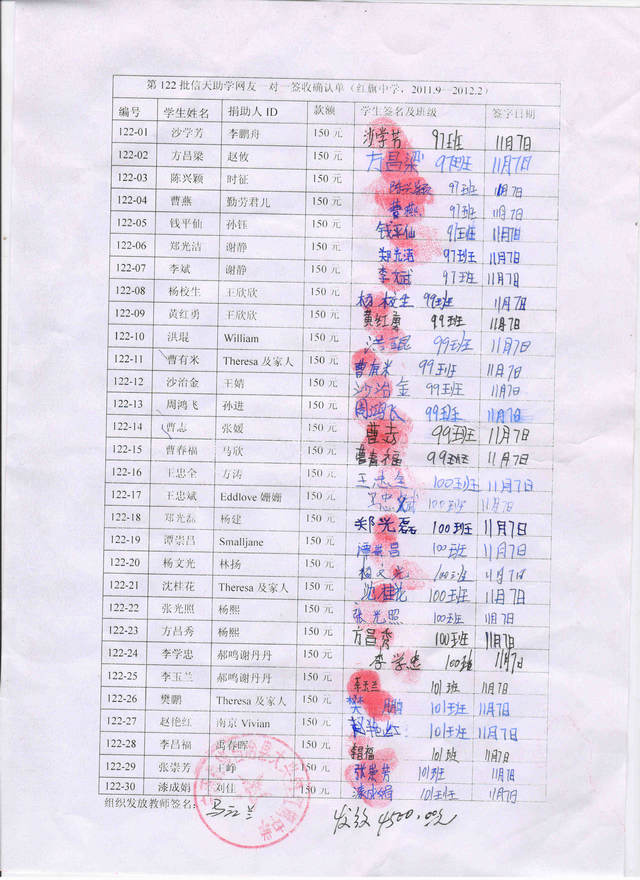 第 122 批信天助学网友一对一签收确认单（红旗中学，2011.9—2012.2）
编号 学生姓名 捐助人 ID 款额 学生签名及班级 签字日期
122-01 沙学芳 李鹏舟 150 元 沙学芳 97班 11月7日
122-02 方昌梁 赵攸 150 元 方昌梁 97班 11月7日
122-03 陈兴颖 时征 150 元 陈兴颖 97班 11月7日
122-04 曹燕 勤劳君儿 150 元 曹燕 97班 11月7日
122-05 钱平仙 孙钰 150 元 钱平仙 97班 11月7日
122-06 郑光洁 谢静 150 元 郑光洁 97班 11月7日
122-07 李斌 谢静 150 元 李斌 97班 11月7日
122-08 杨校生 王欣欣 150 元 杨校生 99班 11月7日
122-09 黄红勇 王欣欣 150 元 黄红勇 99班 11月7日
122-10 洪琨 William 150 元 洪琨 99班 11月7日
122-11 曹有米 Theresa 及家人 150 元 曹有米 99班 11月7日
122-12 沙治金 王婧 150 元 沙治金 99班 11月7日
122-13 周鸿飞 孙进 150 元 周鸿飞 99班 11月7日
122-14 曹志 张媛 150 元 曹志 99班 11月7日
122-15 曹春福 马欣 150 元 曹春福 99班 11月7日
122-16 王忠全 方涛 150 元 王忠全 100班 11月7日
122-17 王忠斌 Eddlove 姗姗 150 元 王忠斌 100班 11月7日
122-18 郑光磊 杨建 150 元 郑光磊 100班 11月7日
122-19 谭崇昌 Smalljane 150 元 谭崇昌 100班 11月7日
122-20 杨文光 林扬 150 元 杨文光 100班 11月7日
122-21 沈桂花 Theresa 及家人 150 元 沈桂花 100班 11月7日
122-22 张光照 杨熙 150 元 张光照 100班 11月7日
122-23 方昌秀 杨熙 150 元 方昌秀 100班 11月7日
122-24 李学忠 郝鸣谢丹丹 150 元 李学忠 100班 11月7日
122-25 李玉兰 郝鸣谢丹丹 150 元 李玉兰 101班 11月7日
122-26 樊鹏 Theresa 及家人 150 元 樊鹏 101班 11月7日
122-27 赵艳红 南京 Vivian 150 元 赵艳红 101班 11月7日
122-28 李昌福 禹春晖 150 元 李昌福 101班 11月7日
122-29 张崇芳 王峥 150 元 张崇芳 101班 11月7日
122-30 漆成娟 刘佳 150 元 漆成娟 101班 11月7日
组织发放教师签名： 马 兰 发放 4500.00元